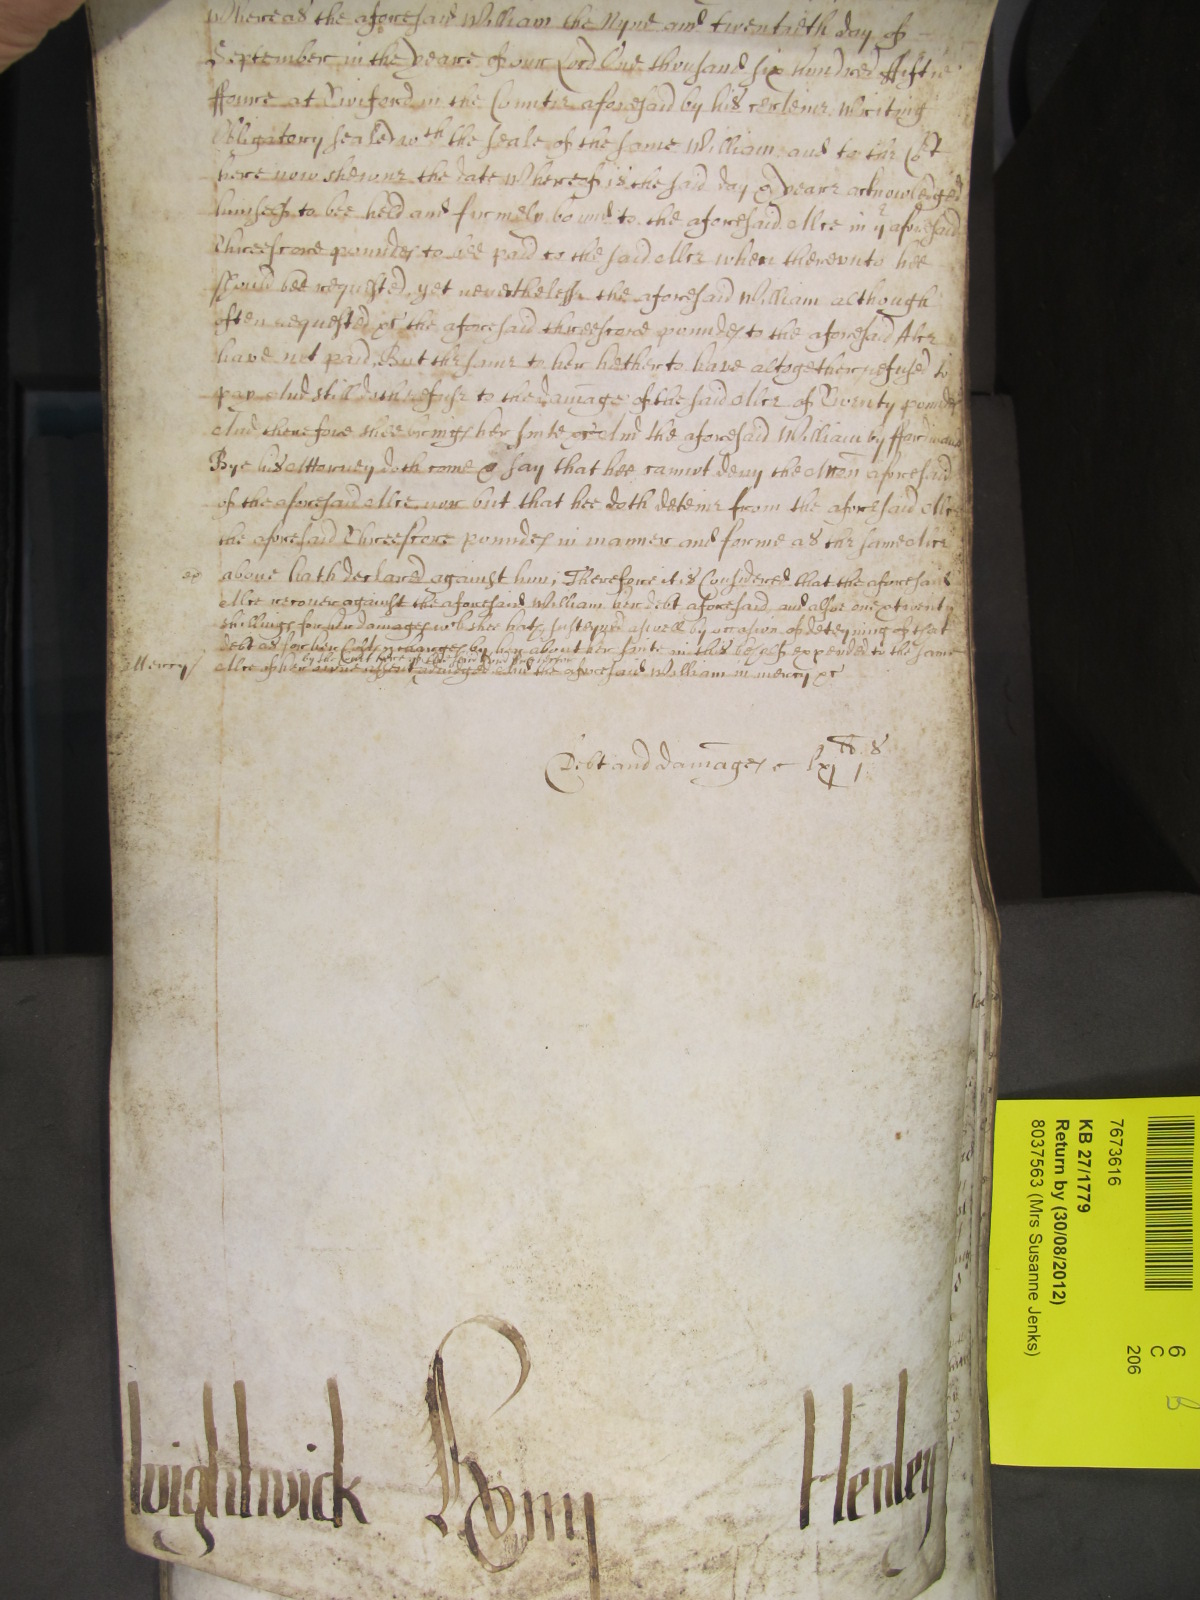 Whereas the aforesaid William the Nyne and twentieth day of
September in the yeare of our Lord One thousand six hundred ffiftie
ffoure at Twiford in the Countie aforesaid by his certeine writing
Obligatory sealed wth the seale of the same William and to the Cort
here now shewne the date whereof is the said day & yeare acknowledged
himself to bee held and firmely bound to the aforesaid Alice in ye aforesaid
Threescore poundes to bee paid to the said Alice when therevnto hee
should bee requested, yet neverthelesse the aforesaid William although
often requested &c the aforesaid threescore poundes to the aforesaid Alice
have not paid, But the same to her hetherto have altogether refused to
pay And still doth refuse to the damage of the said Alice of Twenty poundes
And therefore shee brings her suite &c And the aforesaid William by
Bye his Attorney doth come & say that hee cannot deny the Accon aforesaid
of the aforesaid Alice nor but that hee doth deteine from the aforesaid Alice
the aforesaid Threescore poundes in manner and forme as the same Alice
above hath declared against him; Therefore it is Considered that the aforesaid
Alice recover against the aforesaid William her debt aforesaid, and alsoe one & twenty
shillings for her damages wch shee hath susteyned aswell by occasion of deteyning of that
debt as for her Costs & charges by her about her suite in this behalf expended to the same
by the Court here
Mercy/ Alice of her owne assent adiudged And the aforesaid William in mercy &c
Debt and damages lxj li j s
Wightwick Romy Henley
7673616
KB 27/1779
Return by (30/08/2012)
8037563 (Mrs Susanne Jenks)
6
C
206
B